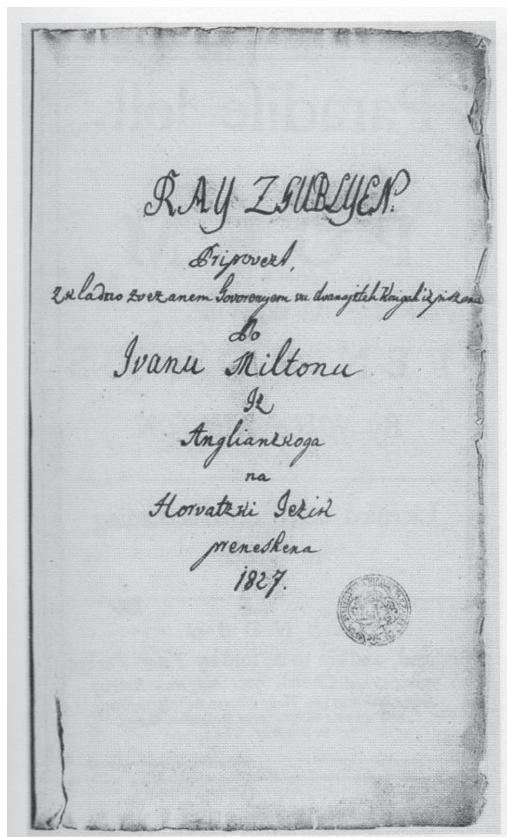 RAY ZGUBLYEN.
Pripovezt,
zkladno zvezanem Govorenyem vu dvanajzteh Knigah izpiszana
Po
Ivanu Miltonu
Iz
Anglianzkoga
na
Horvatzki Jezik
preneshena
1827.